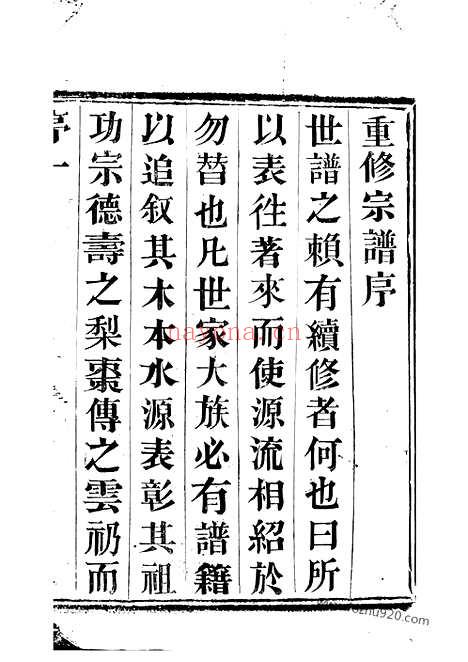 重修宗譜序
世譜之賴有續修者何也曰所
以表往著來而使源流相紹於
勿替也凡世家大族必有譜籍
以追叙其木本水源表彰其祖
功宗德壽之梨棗傳之雲礽而
序一
nayona.cn